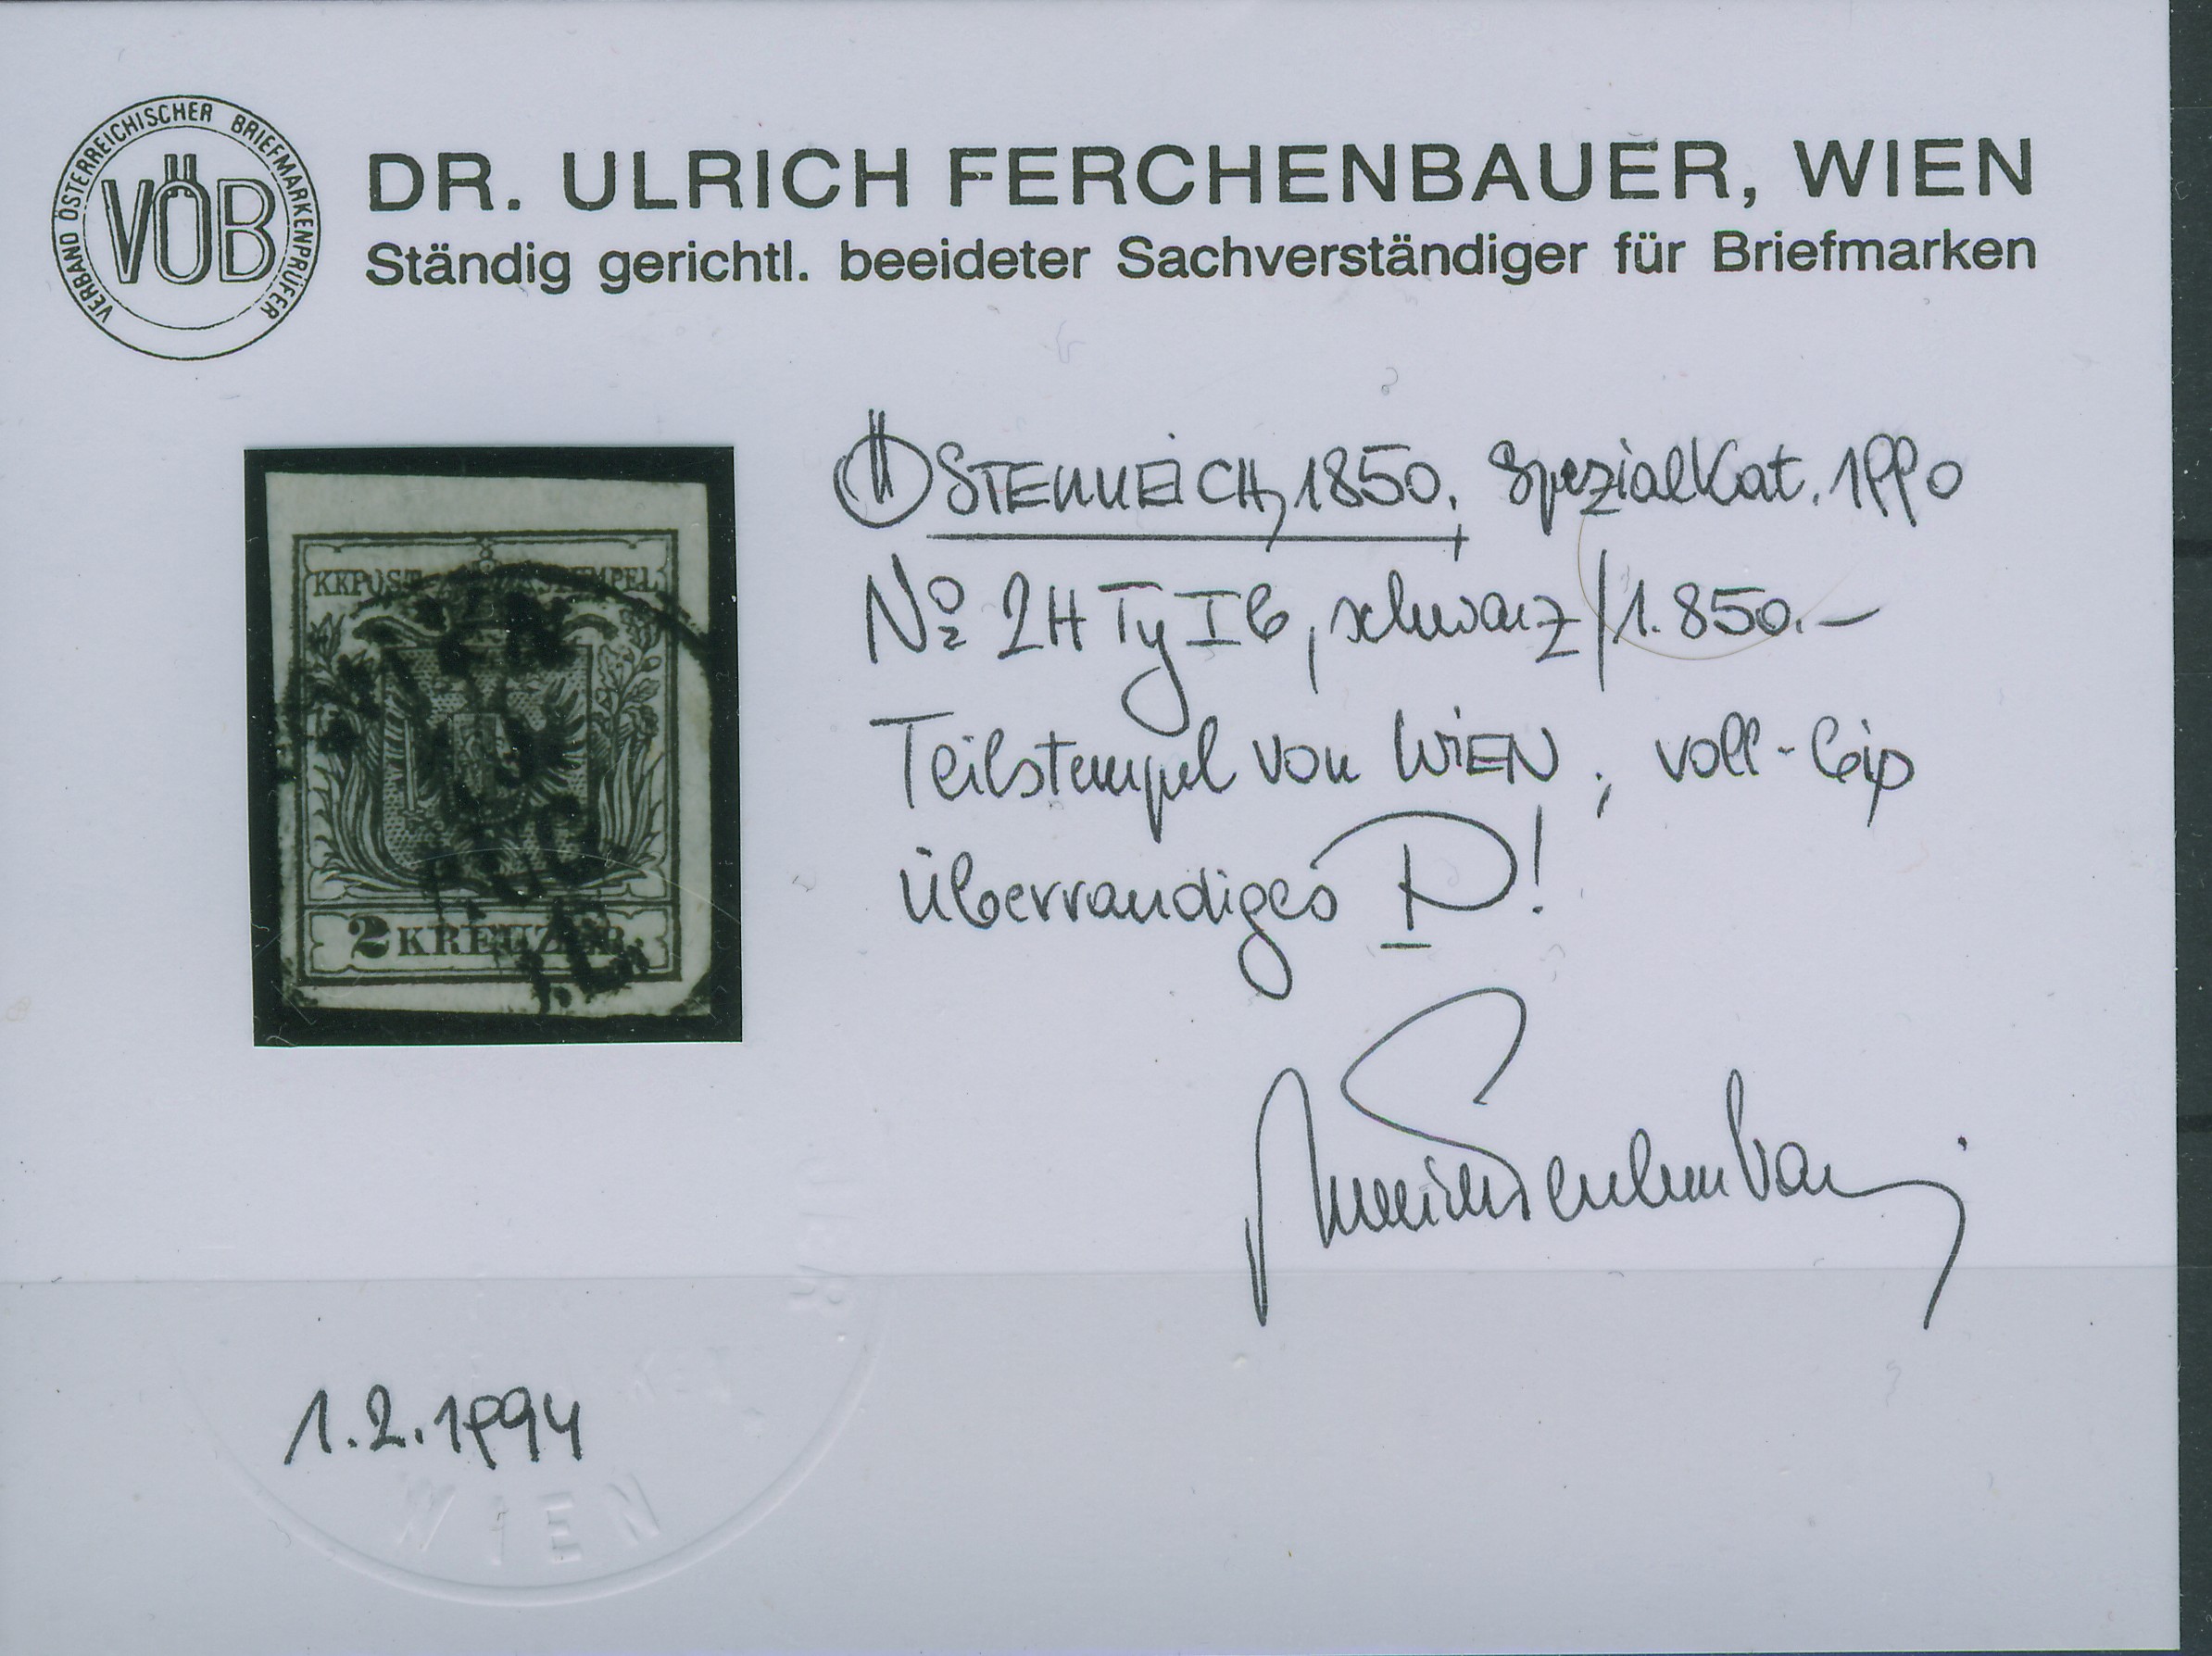 VERBAND ÖSTERREICHISCHER BRIEFMARKENPRÜFER
VÖB
DR. ULRICH FERCHENBAUER, WIEN
Ständig gerichtl. beeideter Sachverständiger für Briefmarken
ÖSTERREICH, 1850, Spezialkat. 1990
No 2H Ty Ib, schwarz/1.850.-
Teilstempel von WIEN, voll-bis
überrandiges P!
KKPOST-STEMPEL
WIEN
2 KREUZER
1.2.1994
WIEN